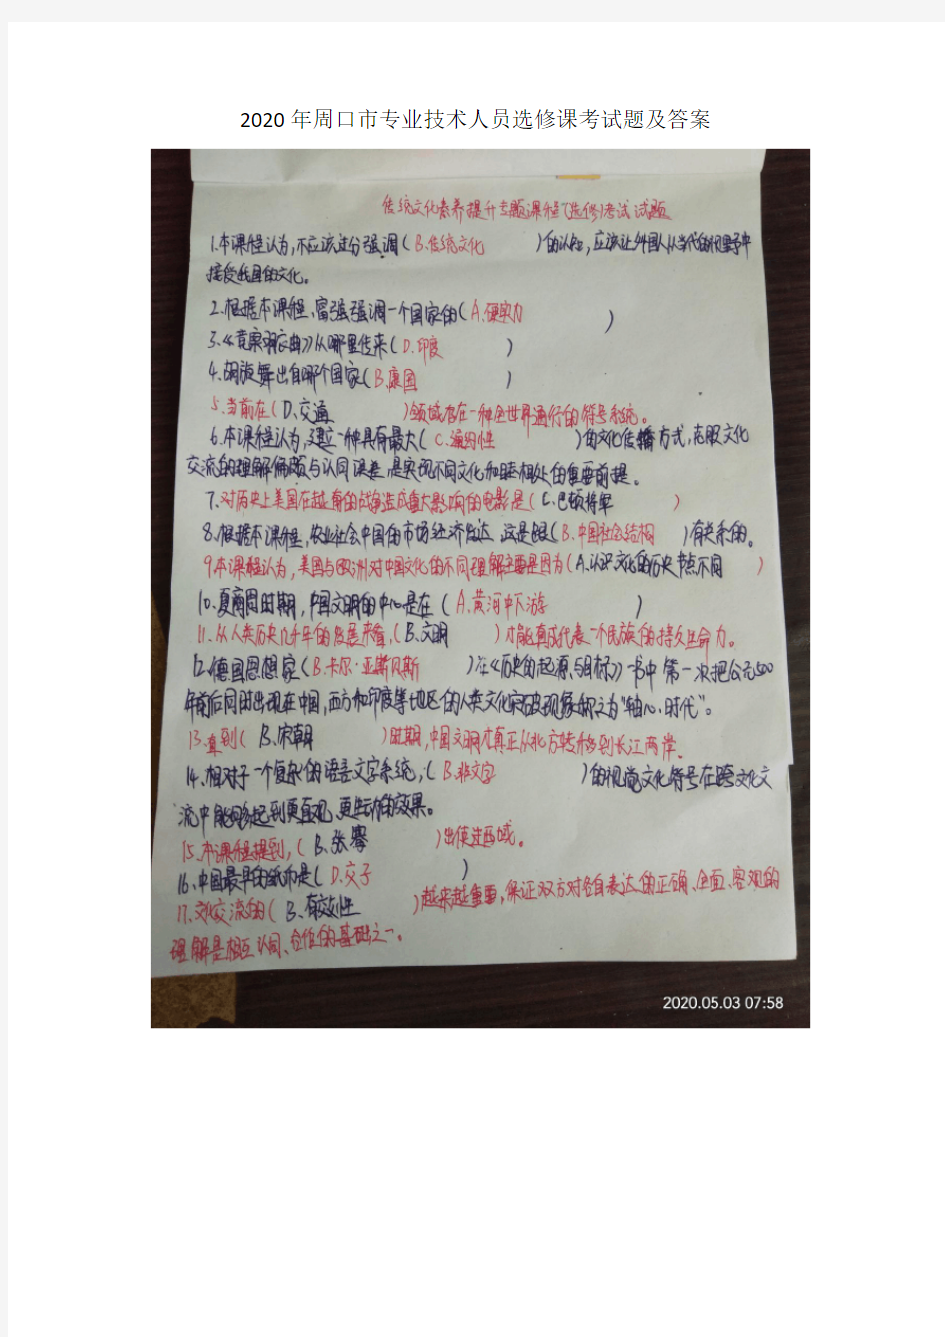 2020 年周口市专业技术人员选修课考试题及答案
传统文化素养提升专题课程(选修)考试试题
1.本课程认为,不应该过分强调(B.传统文化 )的认知,应该让外国人从当代的视野中
接受我国的文化。
2.根据本课程、富强强调一个国家的(A.硬实力 )
3.《霓裳羽衣曲》从哪里传来(D.印度 )
4.胡旋舞出自哪个国家(B.康国 )
5.当前在(D、交通 )领域存在一种全世界通行的符号系统。
6.本课程认为,建立一种具有最大(C.通约性 )的文化传播方式,克服文化
交流的理解偏颇与认同误差,是实现不同文化和睦相处的重要前提。
7、对历史上美国在越南的战争造成重大影响的电影是(C.巴顿将军 )
8.根据本课程,农业社会中国的市场经济发达,这是跟(B.中国社会结构 )有关系的。
9本课程认为,美国与欧洲对中国文化的不同理解主要是因为(A.认识文化的历史节点不同 )
10.夏商周时期,中国文明的中心是在(A.黄河中下游 )
11、从人类历史几千年的发展来看,(B、文明 )才能真成代表一个民族的持久生命力。
12.德国思想家(B.卡尔·亚斯贝斯 )在《历史的起源与目标》一书中第一次把公元500
年前后同时出现在中国,西方和印度等地区的人类文化突破现象称之为“轴心时代”。
13、直到(B、宋朝 )时期,中国文明才真正从北方转移到长江两岸.
14、相对于一个复杂的语言文字系统,(B.非文字 )的视觉文化符号在跨文化交
流中能够起到更直观、更生动的效果。
15、本课程提到,(B、张骞 )出使过西域。
16、中国最早的纸币是(D.交子 )
17、文化交流的(B、有效性 )越来越重要,保证双方对各自表达的正确、全面、客观的
理解是相互认同、合作的基础之一。
2020.05.03 07:58